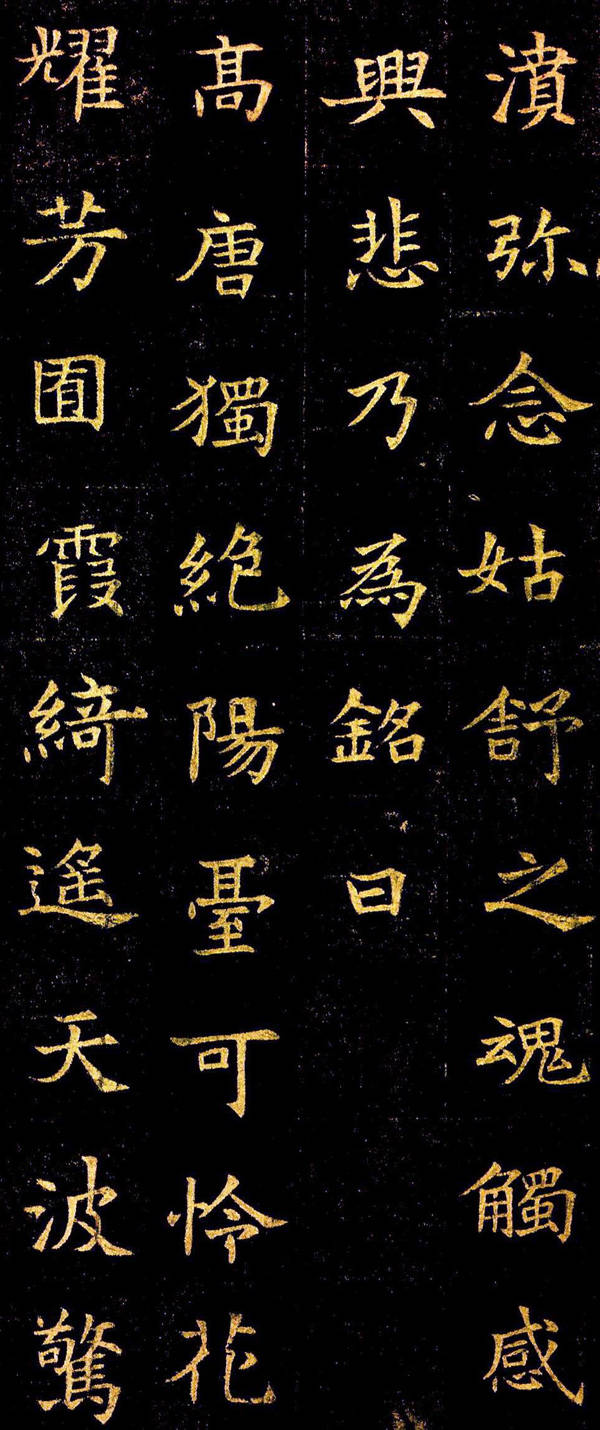 濆弥念姑舒之魂觸感
興悲乃為銘曰
高唐獨絶陽臺可怜花
耀芳囿霞綺遙天波驚